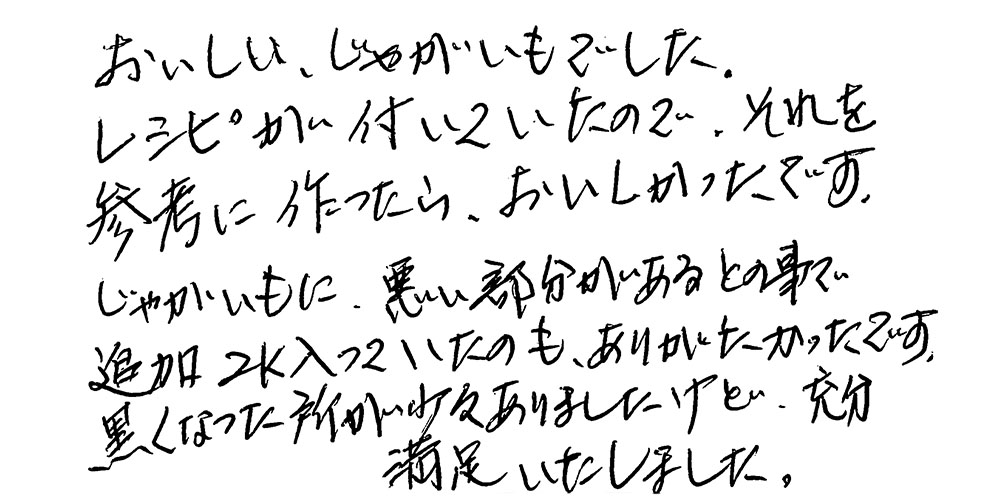 おいしい、じゃがいもでした。
レシピが付いていたので、それを
参考に作ったら、おいしかったです。
じゃがいもに、悪い部分があるとの事で
追加2K入っていたのも、ありがたかったです。
黒くなった所が少々ありましたけど、充分
満足いたしました。